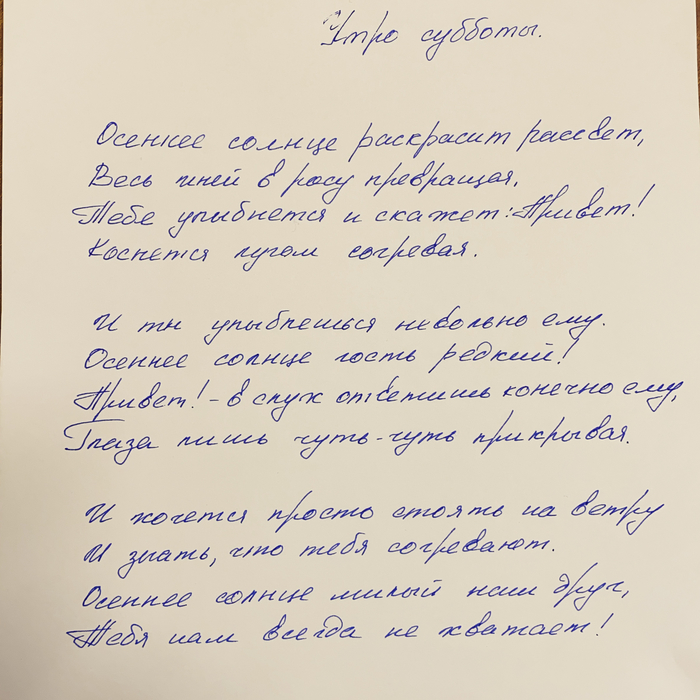 Утро субботы.
Осеннее солнце раскрасит рассвет,
Весь иней в росу превращая.
Тебе улыбнется и скажет: Привет!
Коснется лучом согревая.
И ты улыбнешься невольно ему.
Осеннее солнце гость редкий!
Привет! - в слух ответишь конечно ему,
Глаза лишь чуть-чуть прикрывая.
И хочется просто стоять на ветру
И знать, что тебя согревают.
Осеннее солнце милый наш друг,
Тебя нам всегда не хватает!